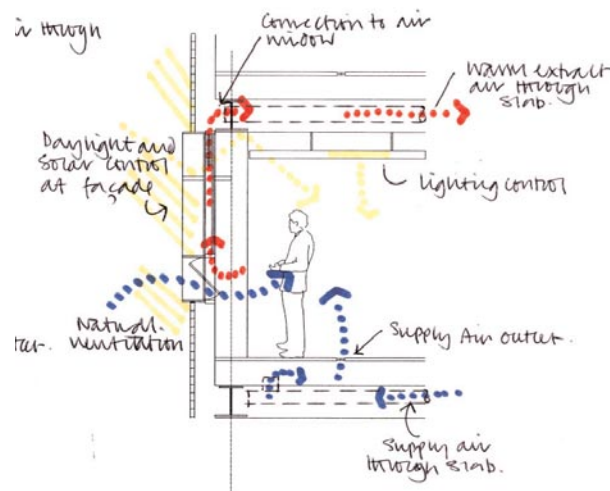 air through
Connection to air
window
Warm extract
air through
slab.
Daylight and
solar control
at façade
Lighting control
Natural
ventilation
Supply Air outlet.
Supply air
through slab.